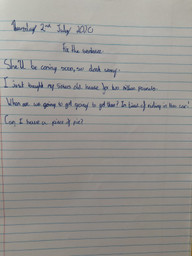 Thursday 2nd July 2020
Fix the sentence.
She'll be coming soon, so don't worry.
I just bought my sisters old house for two million pounds.
When are we going to get going to get there? I'm tired of riding in this car!
Can I have a piece of pie?